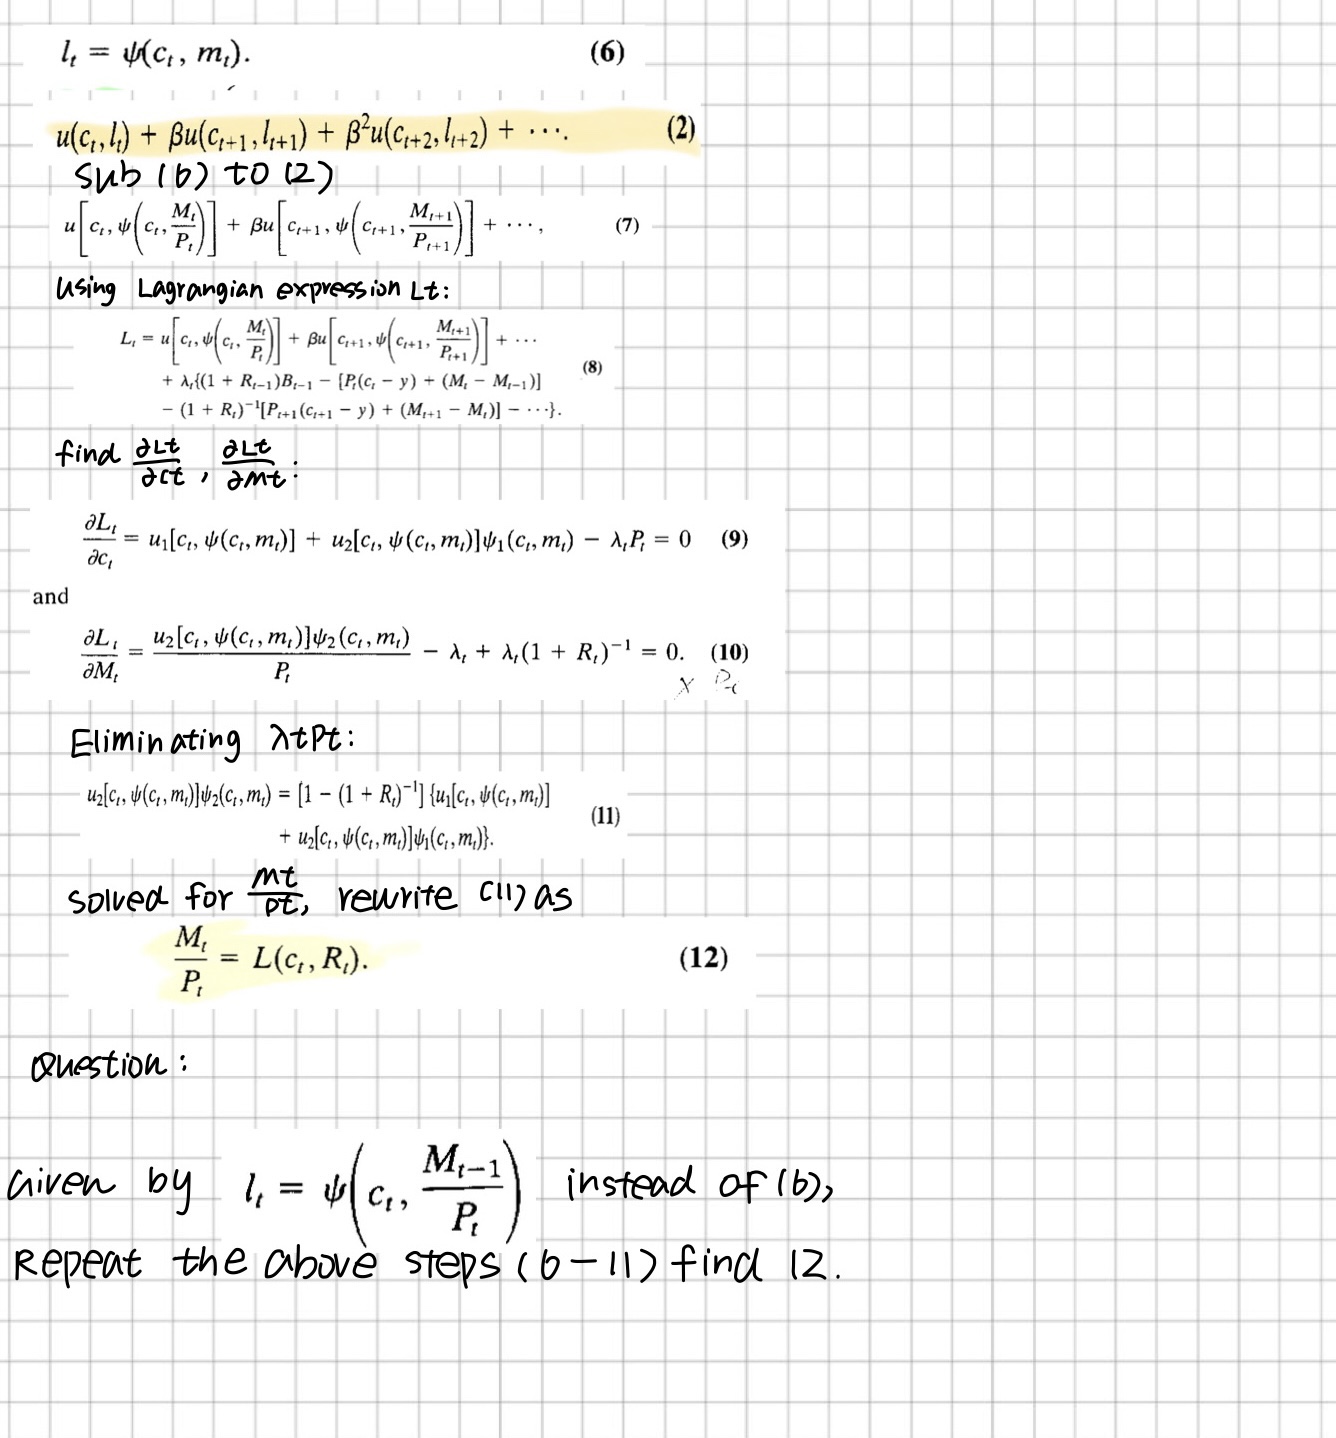 l_t = ψ(c_t, m_t). (6)
u(c_t, l_t) + βu(c_{t+1}, l_{t+1}) + β²u(c_{t+2}, l_{t+2}) + ⋯. (2)
Sub (6) to (2)
u[c_t, ψ(c_t, M_t/P_t)] + βu[c_{t+1}, ψ(c_{t+1}, M_{t+1}/P_{t+1})] + ⋯, (7)
Using Lagrangian expression Lt:
L_t = u[c_t, ψ(c_t, M_t/P_t)] + βu[c_{t+1}, ψ(c_{t+1}, M_{t+1}/P_{t+1})] + ⋯
+ λ_t{(1 + R_{t−1})B_{t−1} − [P_t(c_t − y) + (M_t − M_{t−1})] (8)
− (1 + R_t)^{−1}[P_{t+1}(c_{t+1} − y) + (M_{t+1} − M_t)] − ⋯}.
find ∂Lt/∂ct, ∂Lt/∂Mt:
∂L_t/∂c_t = u_1[c_t, ψ(c_t, m_t)] + u_2[c_t, ψ(c_t, m_t)]ψ_1(c_t, m_t) − λ_tP_t = 0 (9)
and
∂L_t/∂M_t = u_2[c_t, ψ(c_t, m_t)]ψ_2(c_t, m_t)/P_t − λ_t + λ_t(1 + R_t)^{−1} = 0. (10)
Eliminating λtPt:
u_2[c_t, ψ(c_t, m_t)]ψ_2(c_t, m_t) = [1 − (1 + R_t)^{−1}] {u_1[c_t, ψ(c_t, m_t)]
+ u_2[c_t, ψ(c_t, m_t)]ψ_1(c_t, m_t)}. (11)
solved for Mt/Pt, rewrite (11) as
M_t/P_t = L(c_t, R_t). (12)
Question:
Given by l_t = ψ(c_t, M_{t−1}/P_t) instead of (6),
Repeat the above steps (6-11) find 12.